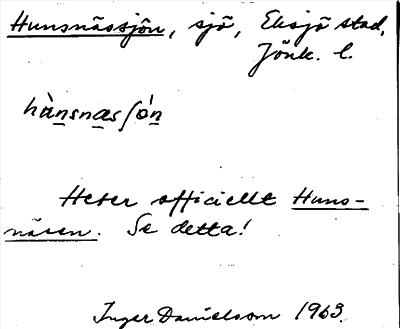 Hunsnässjön, sjö, Eksjö stad,
Jönk. l.
hànsnæsʃón
Heter officiellt Huns-
näsen. Se detta!
Inger Danielsson 1963.